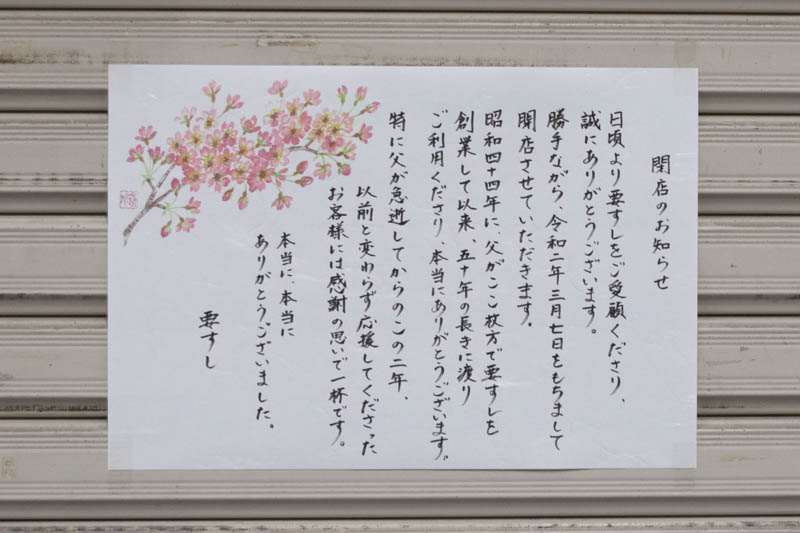 閉店のお知らせ
日頃より要すしをご愛顧くださり、
誠にありがとうございます。
勝手ながら、令和二年三月七日をもちまして
閉店させていただきます。
昭和四十四年に、父がここ枚方で要すしを
創業して以来、五十年の長きに渡り
ご利用くださり、本当にありがとうございます。
特に父が急逝してからのこの二年、
以前と変わらず応援してくださった
お客様には感謝の思いで一杯です。
本当に、本当に
ありがとうございました。
要すし